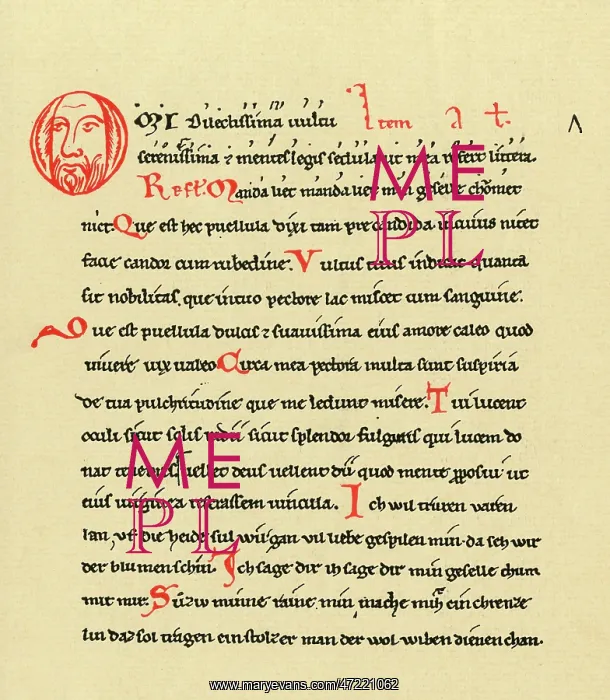 OMI Dilectissima uultu Item a t. Λ
serenissima ⁊ mentes legis sedula ut mea refert littera.
Refl. Manda liet manda liet min geselle chomet
niet. Que est hec puellula dixi tam precandida in cuius nitet
facie candor cum rubedine. Vultus tuus indicat quanta
sit nobilitas, que in tuo pectore lac miscet cum sanguine.
Que est puellula dulcis ⁊ suauissima eius amore caleo quod
uiuere uix ualeo. Circa mea pectora multa sunt suspiria
de tua pulchritudine que me ledunt misere. Tui lucent
oculi sicut solis radii sicut splendor fulguris qui lucem do
nat tenebris uellet deus uellent dii quod mente ꝓposui ut
eius uirginea reserassem uincula. Ich wil truren varen
lan, vf die heide sul wir gan vil liebe gespilen min. da seh wir
der blumen schin. Ich sage dir ih sage dir min geselle chum
mit mir. Suziv minne raine min, mache mih ein chrenze
lin daz sol tragen ein stolzer man der wol wiben dienen chan.
ME
PL
ME
PL
www.maryevans.com/47221062